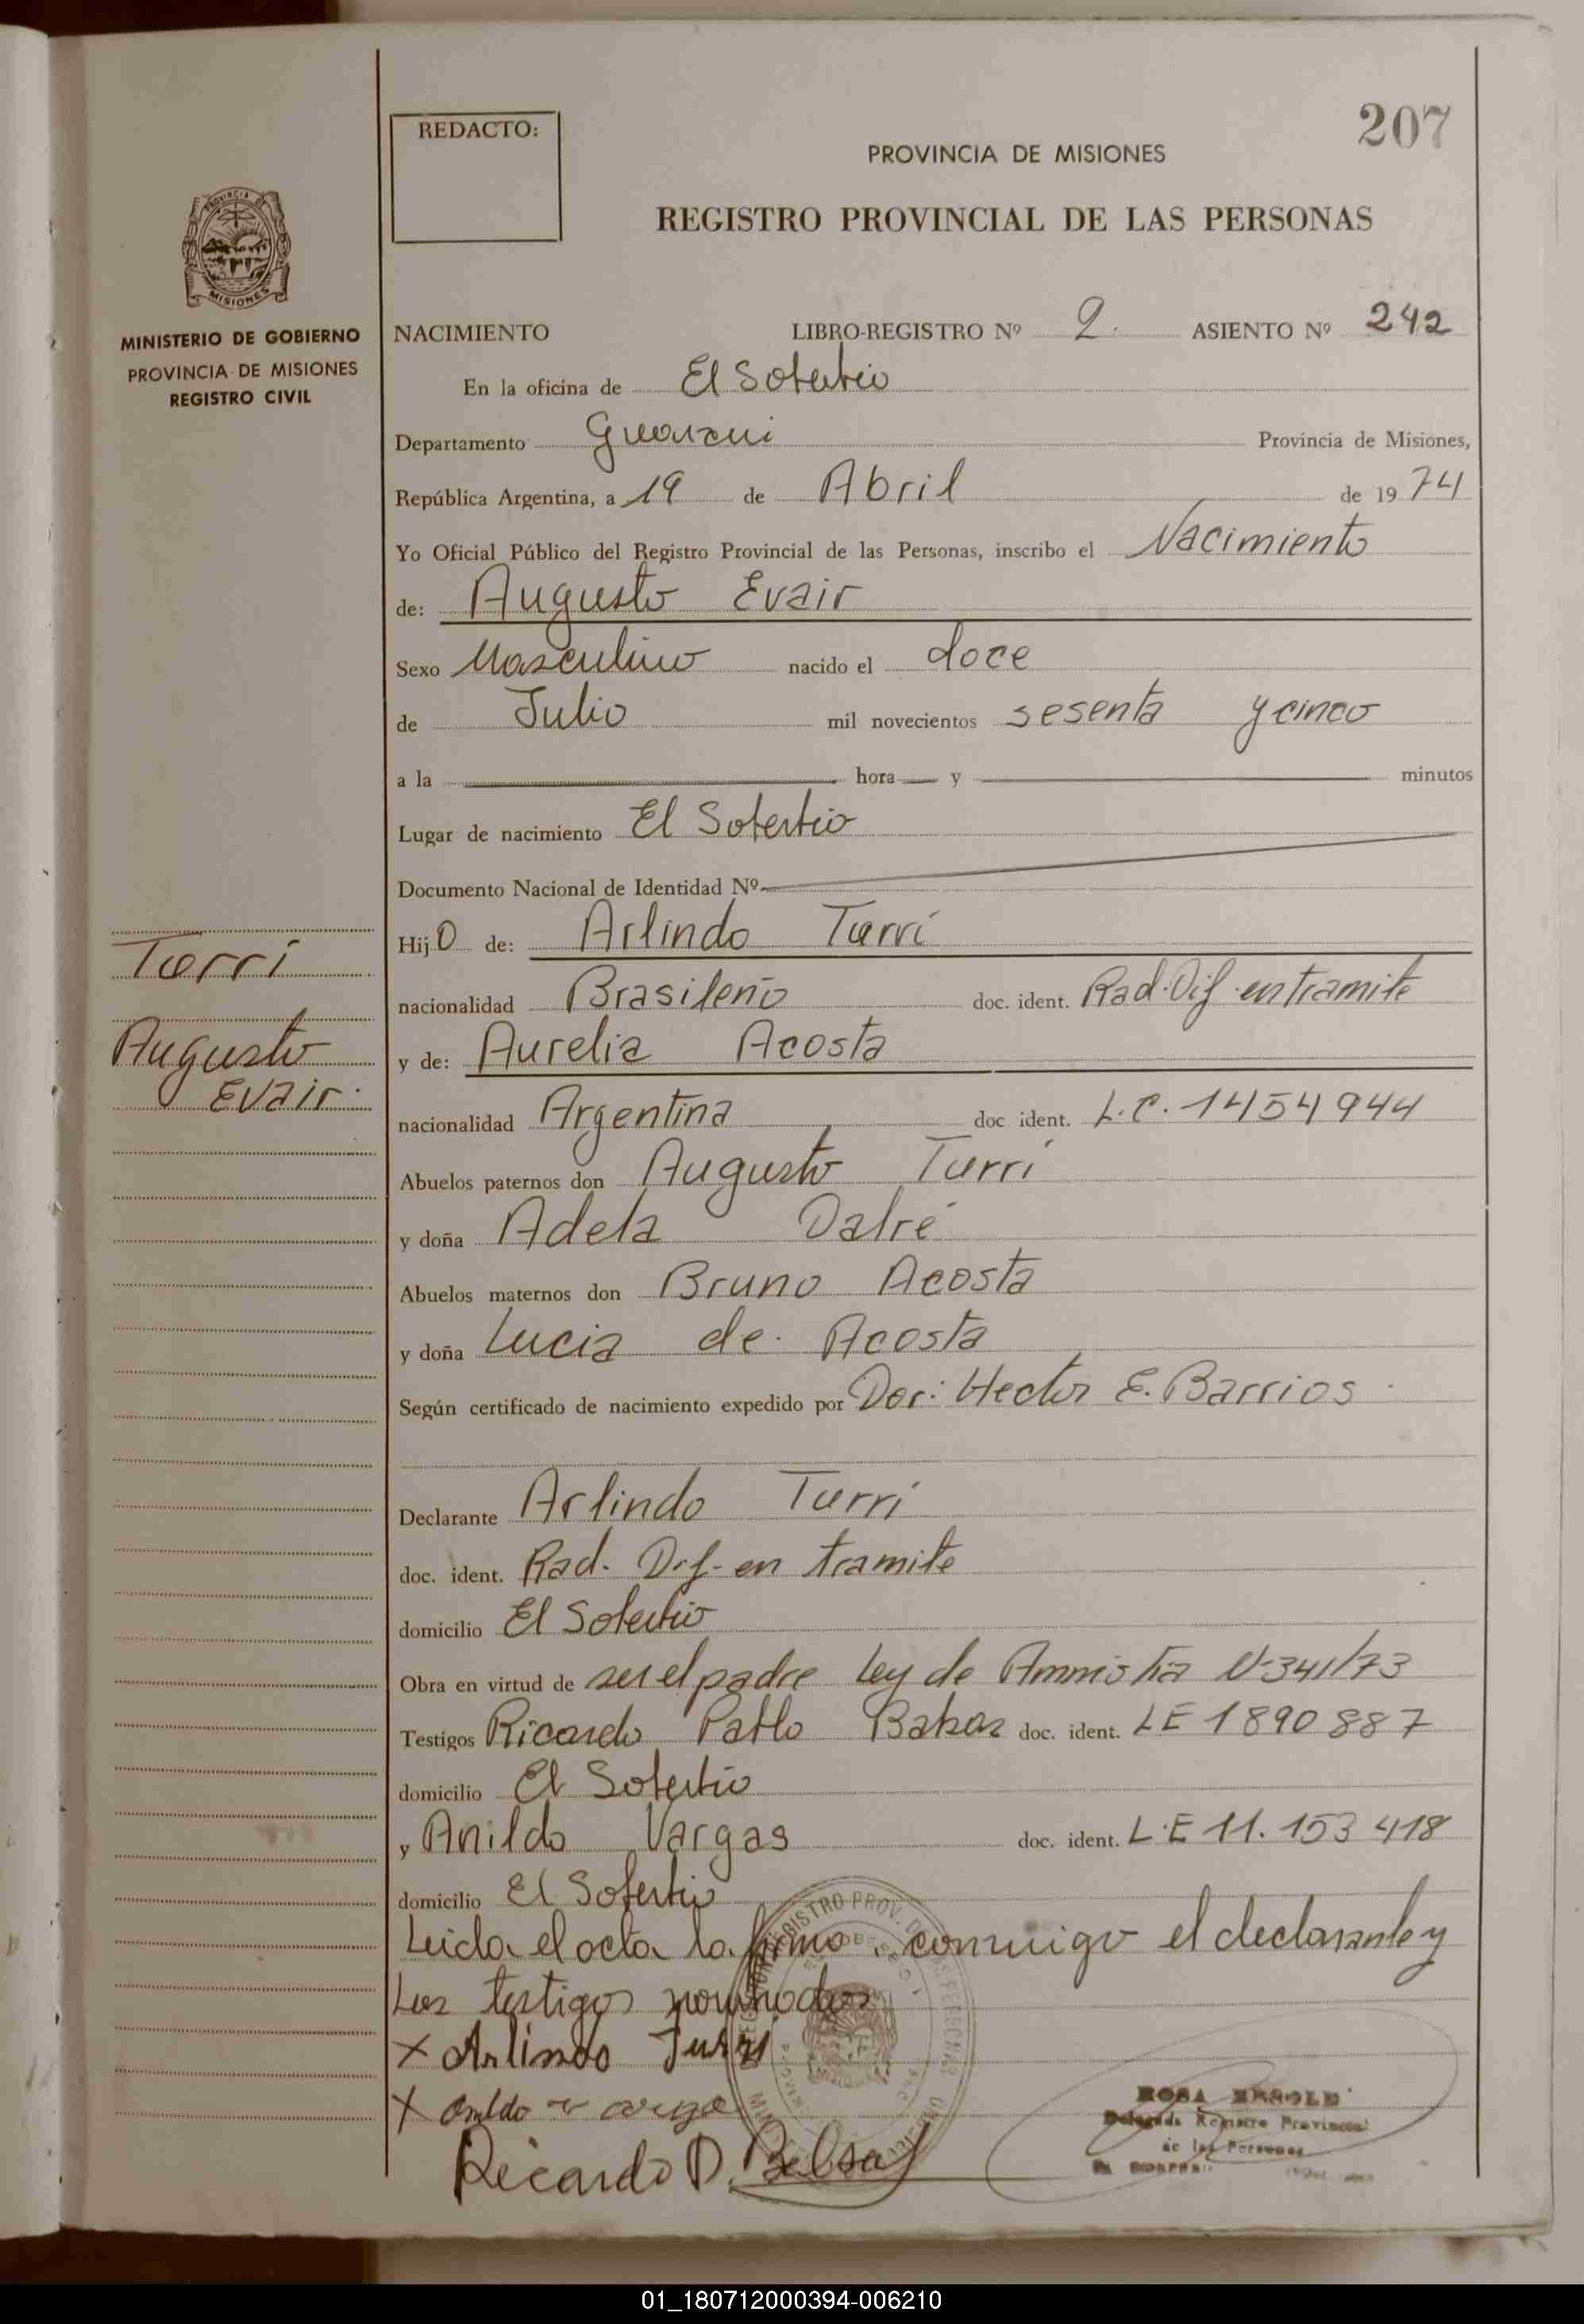 207
REDACTO:
PROVINCIA DE MISIONES
REGISTRO PROVINCIAL DE LAS PERSONAS
MISIONES
MINISTERIO DE GOBIERNO
PROVINCIA DE MISIONES
REGISTRO CIVIL
NACIMIENTO LIBRO-REGISTRO Nº 2. ASIENTO Nº 242
En la oficina de El Soberbio
Departamento Guarani Provincia de Misiones,
República Argentina, a 19 de Abril de 1974
Yo Oficial Público del Registro Provincial de las Personas, inscribo el Nacimiento
de: Augusto Evair
Sexo Masculino nacido el doce
de Julio mil novecientos sesenta y cinco
a la hora y minutos
Lugar de nacimiento El Soberbio
Documento Nacional de Identidad Nº
Turri
Augusto
Evair.
HijO de: Arlindo Turri
nacionalidad Brasileño doc. ident. Rad. Dif. en tramite
y de: Aurelia Acosta
nacionalidad Argentina doc ident. L.C. 1454944
Abuelos paternos don Augusto Turri
y doña Adela Dalré
Abuelos maternos don Bruno Acosta
y doña Lucia de Acosta
Según certificado de nacimiento expedido por Dor: Hector E. Barrios
Declarante Arlindo Turri
doc. ident. Rad. Dif- en tramite
domicilio El Soberbio
Obra en virtud de ser el padre Ley de Amnistia N-341/73
Testigos Ricardo Pablo doc. ident. LE 1890887
domicilio El Soberbio
y Anildo Vargas doc. ident. L.E 11.153 418
domicilio El Soberbio
Leida el acta la firma conmigo el declarante y
Los testigos nombrados
X Arlindo Turri
X
Ricardo P.
ROSA
Delegada Registro Provincial
de las Personas
01_180712000394-006210